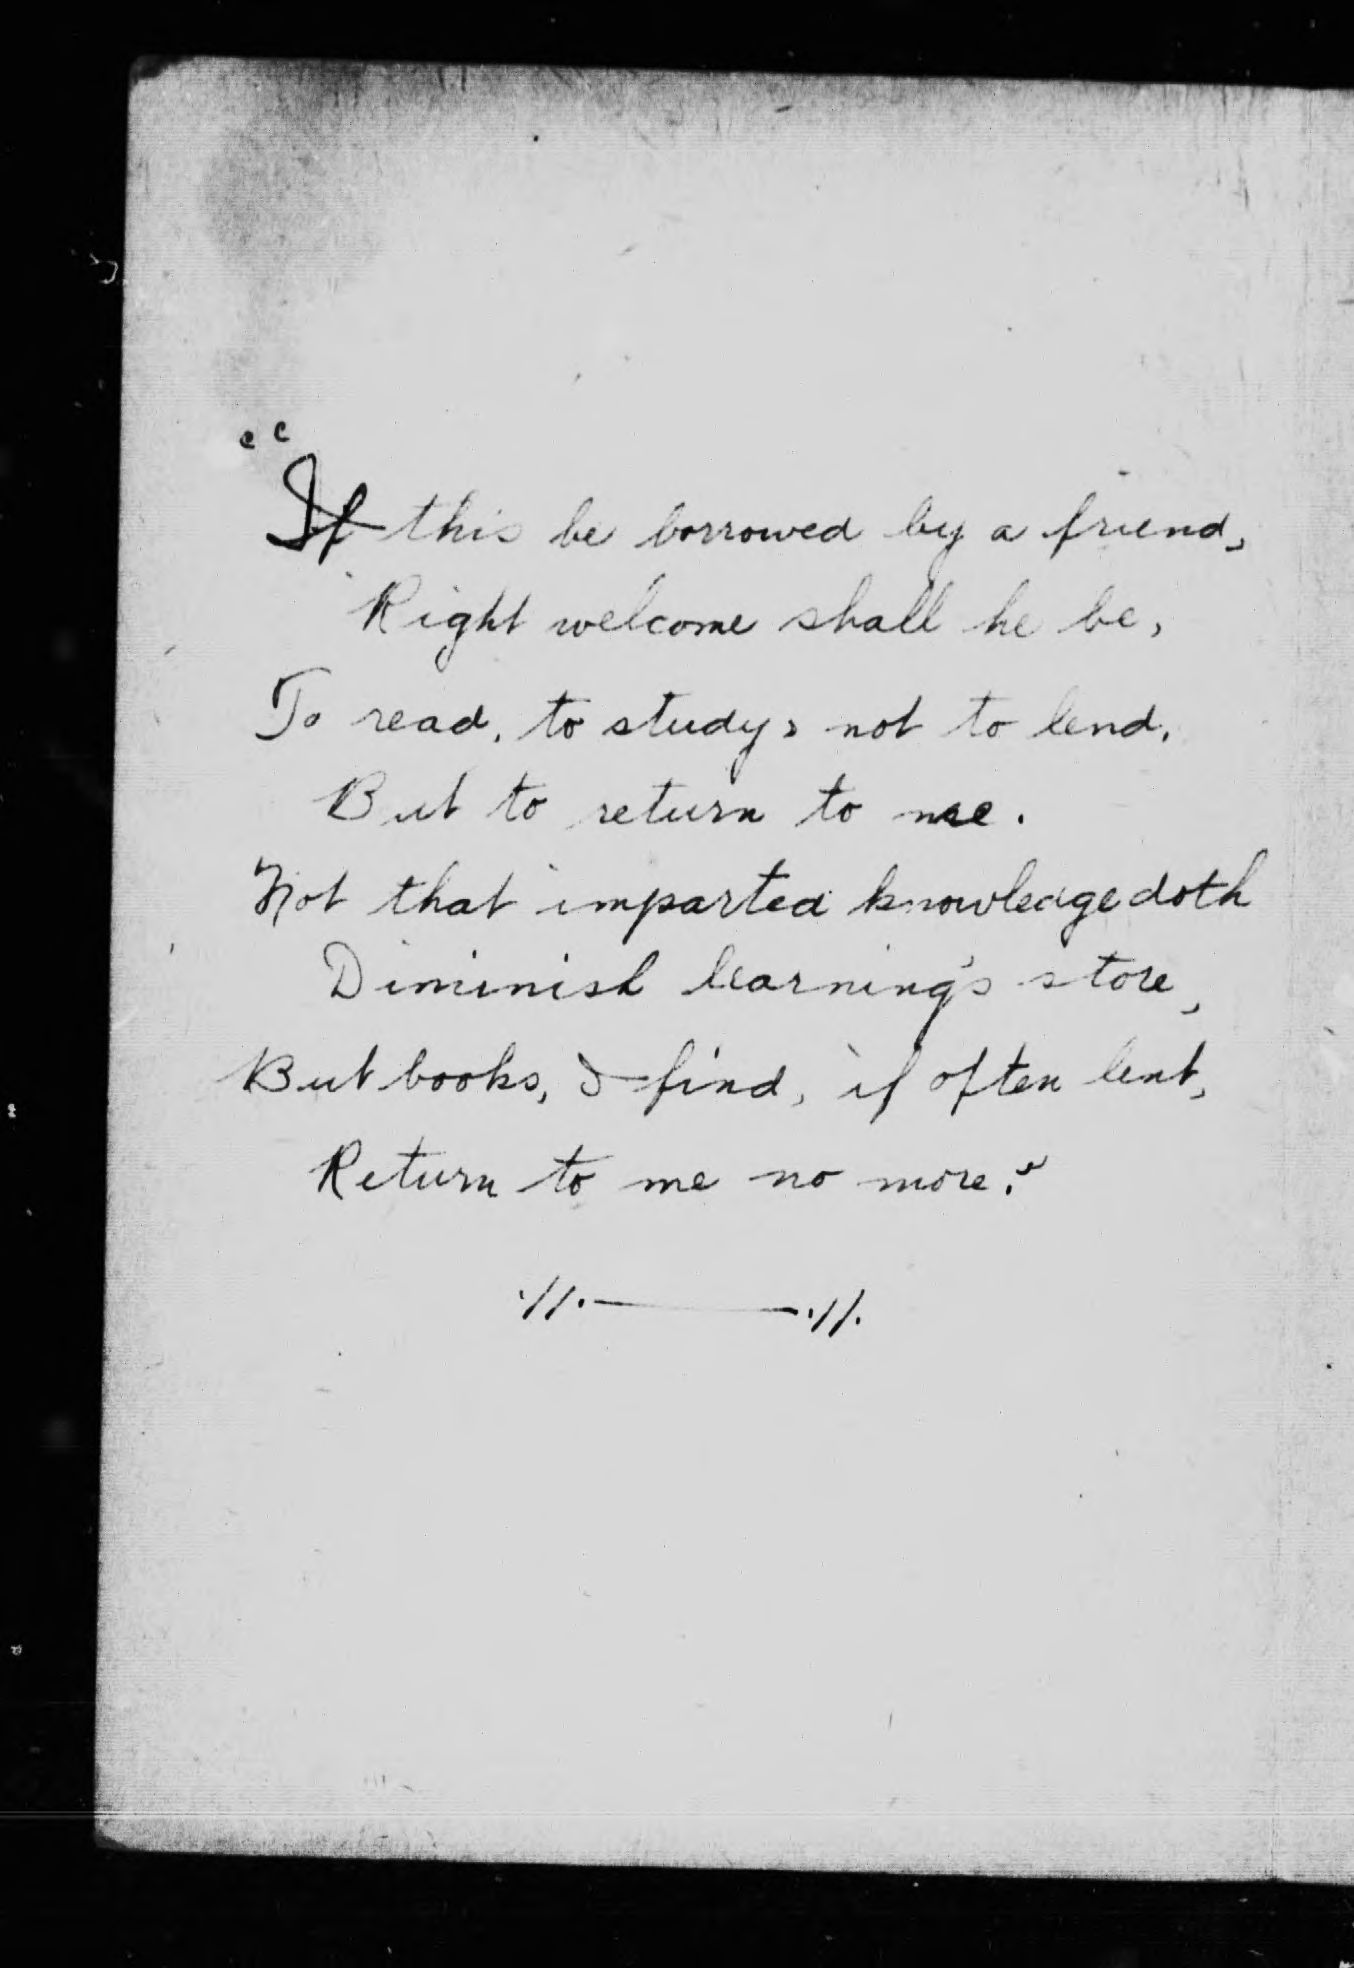 "If this be borrowed by a friend,
Right welcome shall he be,
To read, to study, not to lend,
But to return to me.
Not that imparted knowledge doth
Diminish learning's store,
But books, I find, if often lent,
Return to me no more."